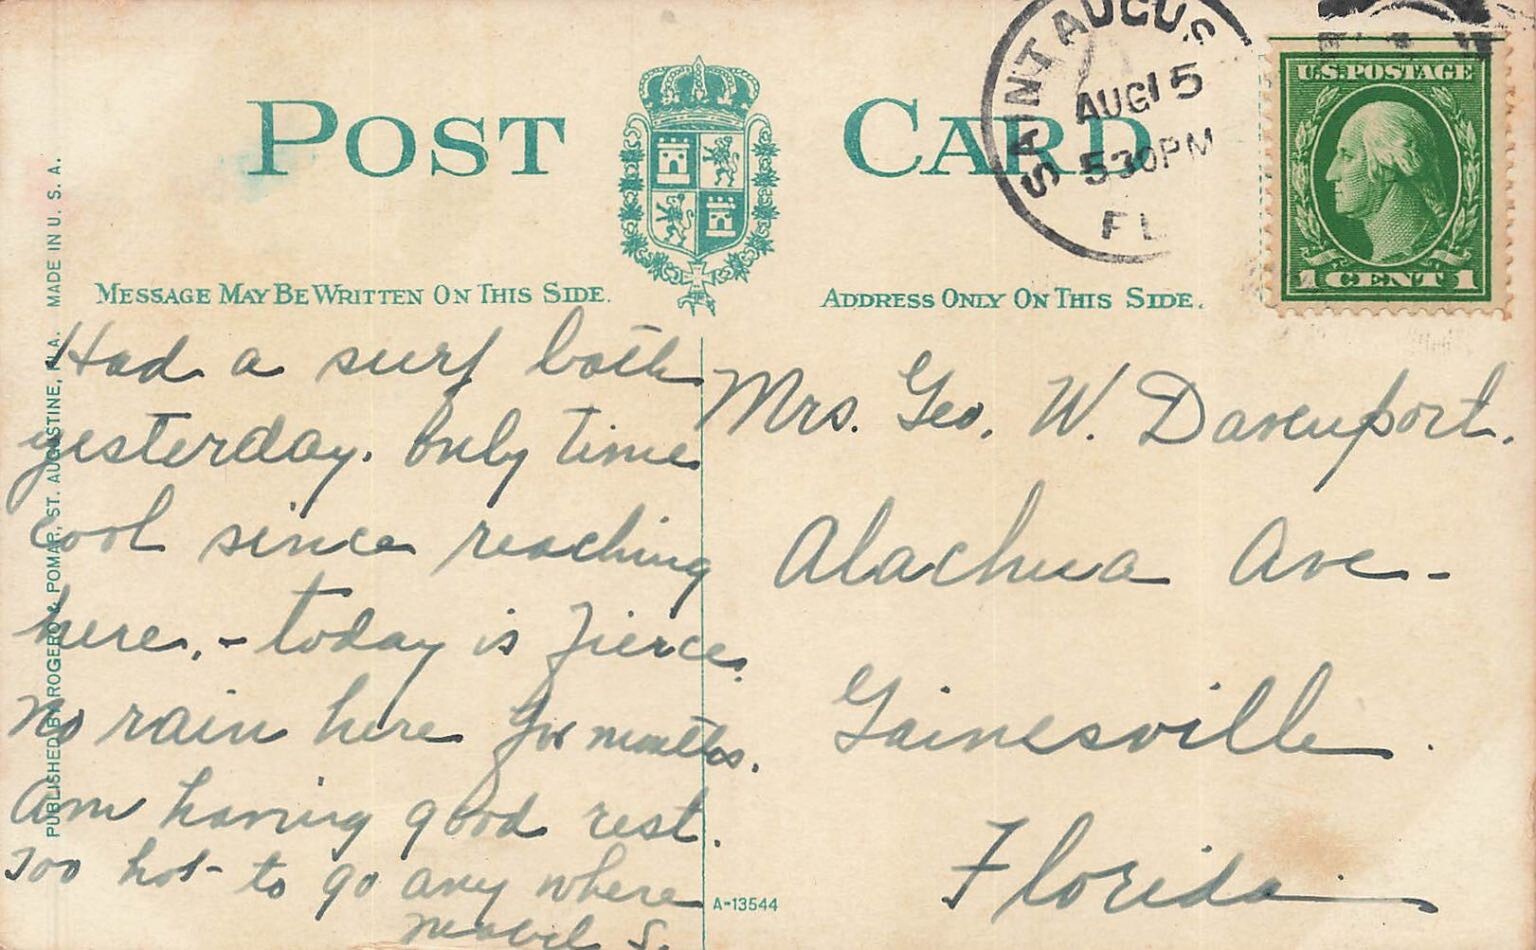 POST CARD
SAINT AUGUS
AUG 15
530PM
FL
U.S. POSTAGE
1 CENT 1
MESSAGE MAY BE WRITTEN ON THIS SIDE.
ADDRESS ONLY ON THIS SIDE.
PUBLISHED BY AROGERO & POMAR, ST. AUGUSTINE, FLA. MADE IN U. S. A.
Had a surf bath
yesterday. Only time
cool since reaching
here, - today is fierce.
No rain here for months.
Am having good rest.
Too hot to go any where
Mabel S.
Mrs. Geo. W. Davenport.
Alachua Ave-
Gainesville.
Florida
A-13544